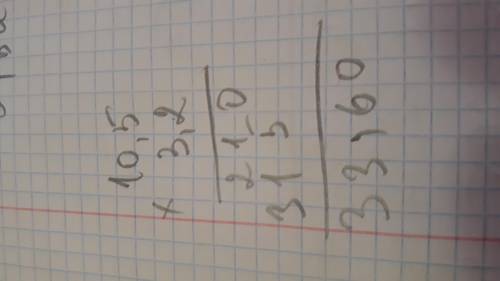 10,5
× 3,2
21,0
31 5
33,60